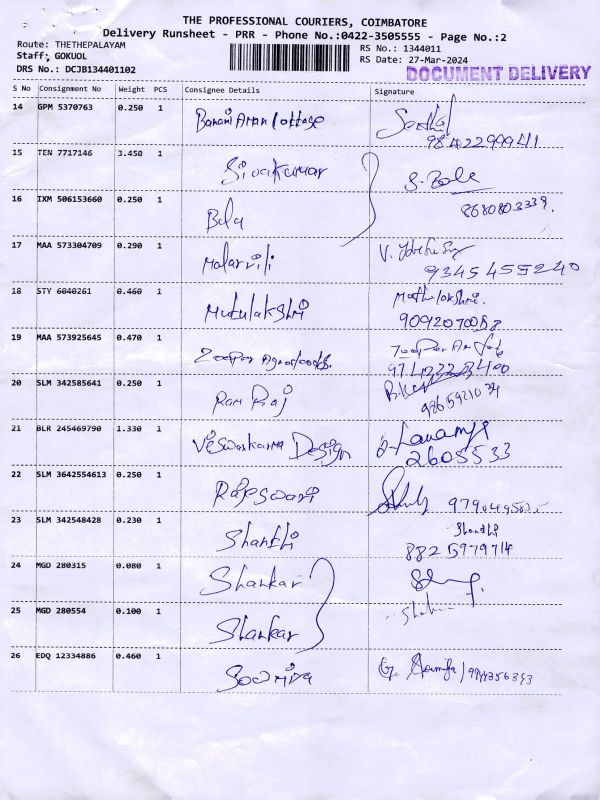 THE PROFESSIONAL COURIERS, COIMBATORE
Delivery Runsheet - PRR - Phone No.:0422-3505555 - Page No.:2
Route: THETHEPALAYAM RS No.: 1344011
Staff: GOKUOL RS Date: 27-Mar-2024
DRS No.: DCJB134401102 DOCUMENT DELIVERY
S No Consignment No Weight PCS Consignee Details Signature
14 GPM 5370763 0.250 1
9842299941
15 TEN 7717146 3.450 1 Sivakumar
S. Bala
16 IXM 506153660 0.250 1 Bala 8680803339.
17 MAA 573304709 0.290 1 Malarvili
9345455240
18 STY 6040261 0.460 1 Mutulakshmi Mathulakshmi.
9092070058
19 MAA 573925645 0.470 1 Zooper Agrofoods.
20 SLM 342585641 0.250 1 Ram Raj
9865921034
21 BLR 245469790 1.330 1 Viswakarma Design
2605533
22 SLM 3642554613 0.250 1 Rajeswari
23 SLM 342548428 0.230 1 Shanthi Shanthi
8825979714
24 MGD 280315 0.080 1 Shankar
25 MGD 280554 0.100 1 Shankar
26 EDQ 12334886 0.460 1 Sowmiya G. Sowmiya / 9944356343